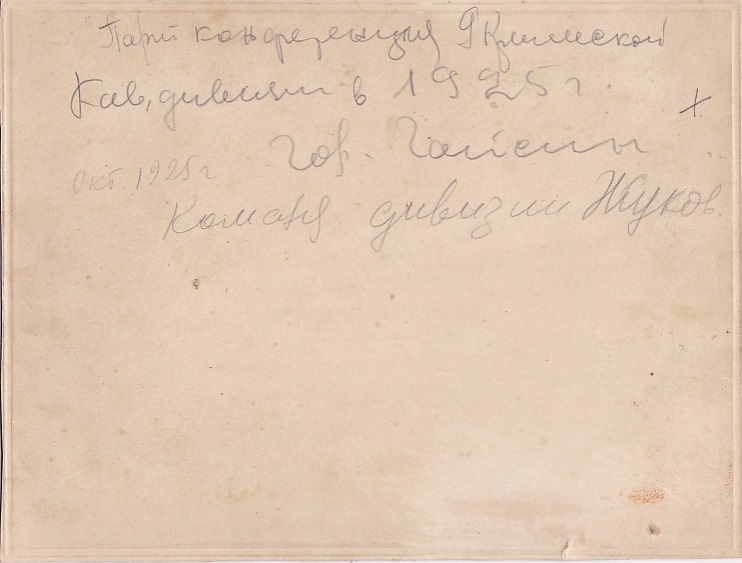 Парт конференция 9 Крымской
Кав. дивизии в 1925 г.
гор. Гайсин
Окт. 1925 г
Команд дивизии Жуков